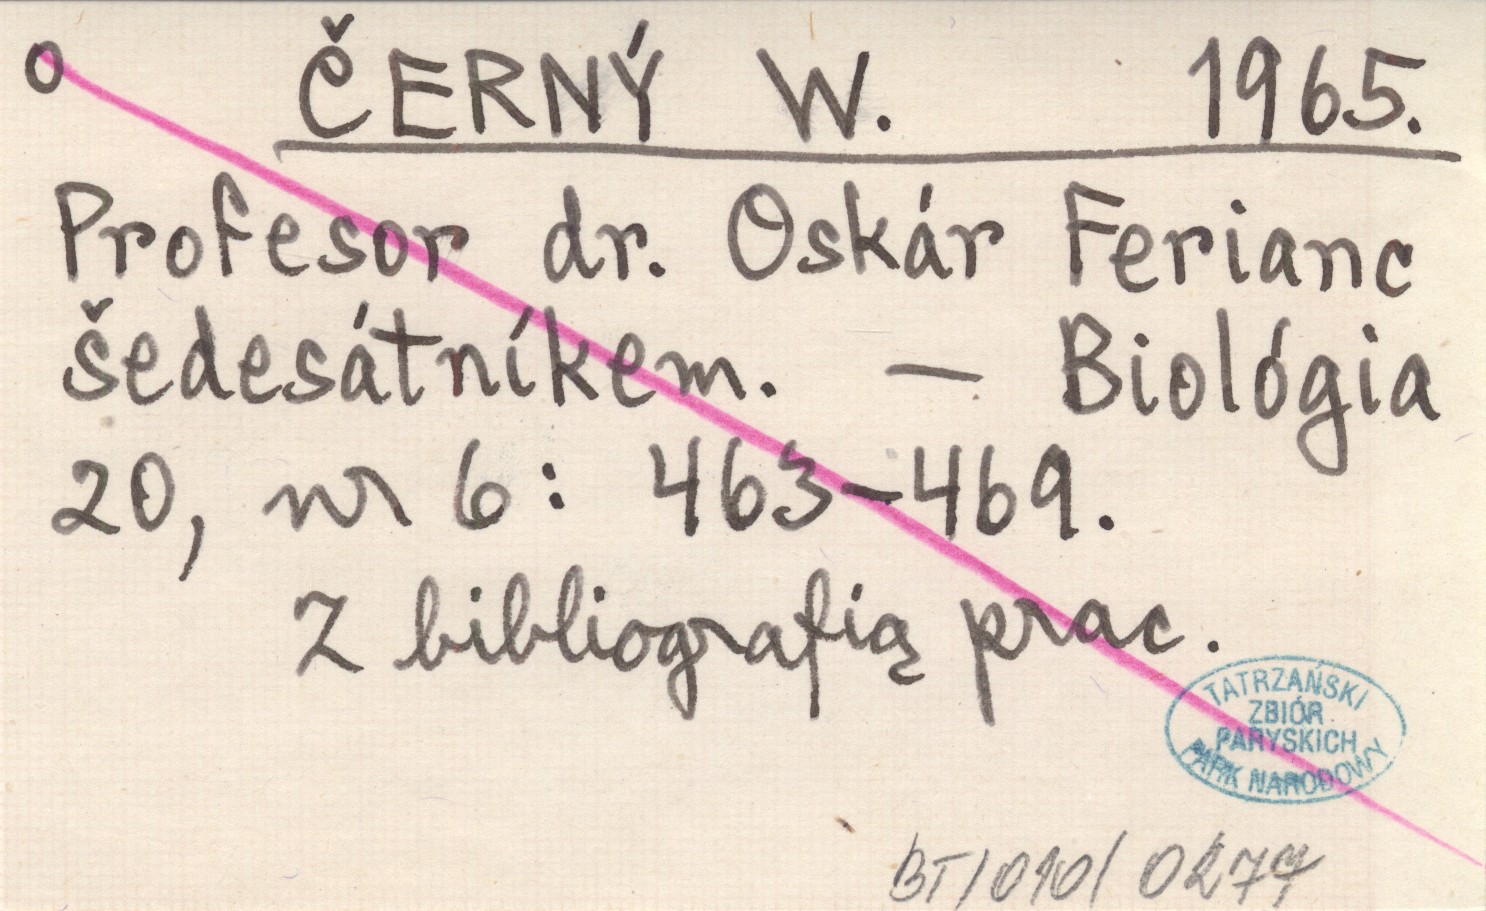 o ČERNÝ W. 1965.
Profesor dr. Oskár Ferianc
šedesátníkem. — Biológia
20, nr 6: 463-469.
Z bibliografią prac.
TATRZAŃSKI
ZBIÓR
PARYSKICH
PARK NARODOWY
BT/010/0277